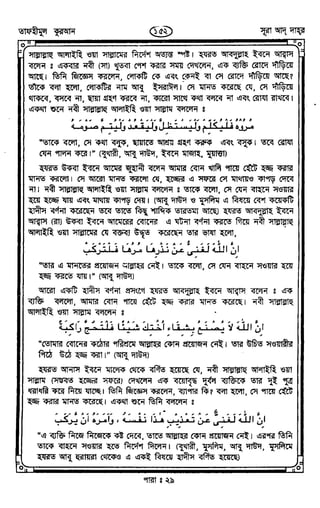 তাফহীমুল কুরআন
১৫২
সূরা আদ্ দাহর
সাল্লাল্লাহু আলাইহি ওয়া সাল্লামের নির্দেশ অত্যন্ত স্পষ্ট। হযরত আবদুল্লাহ ইবনে আব্বাস
বলেন : একবার নবী (সা) খুতবা পেশ করার সময় দেখলেন, এক ব্যক্তি রোদে দাঁড়িয়ে
আছে। তিনি জিজ্ঞেস করলেন, লোকটি কে এবং কেনই বা সে রোদে দাঁড়িয়ে আছে?
তাকে বলা হলো, লোকটির নাম আবু ইসরাঈল। সে মানত করেছে যে, সে দাঁড়িয়ে
থাকবে, বসবে না, ছায়া গ্রহণ করবে না, কারো সাথে কথা বলবে না এবং রোযা রাখবে।
একথা শুনে নবী সাল্লাল্লাহু আলাইহি ওয়া সাল্লাম বললেন :
مروه فليتكلم وليستظل وليقعد وليتم صومه
"তাকে বলো, সে কথা বলুক, ছায়াতে আশ্রয় গ্রহণ করুক এবং বসুক। তবে রোযা
যেন পালন করে।" (বুখারী, আবু দাউদ, ইবনে মাজাহ, মুয়াত্তা)
হযরত উকবা ইবনে আমের জুহানী বলেন আমার বোন খালি পায়ে হেঁটে হজ্জ করার
মানত করলো। সে আরো মানত করলো যে, হজ্জের এ সফরে সে মাথায়ও কাপড় দেবে
না। নবী সাল্লাল্লাহু আলাইহি ওয়া সাল্লাম বললেন : তাকে বলো, সে যেন বাহনে সওয়ার
হয়ে হজ্জে যায় এবং মাথায় কাপড় দেয়। (আবু দাউদ ও মুসলিম এ বিষয়ে বেশ কয়েকটি
হাদীস বর্ণনা করেছেন তবে তাতে কিছু শাব্দিক তারতম্য আছে) হযরত আবদুল্লাহ ইবনে
আব্বাস (রা) উকবা ইবনে আমেরের বোনের এ ঘটনা বর্ণনা করতে গিয়ে নবী সাল্লাল্লাহু
আলাইহি ওয়া সাল্লামের যে বক্তব্য উদ্ধৃত করেছেন তার ভাষা হলো,
ان الله لغنى عن نذرها مرها فلتركب
"তার এ মানতের প্রয়োজন আল্লাহর নেই। তাকে বলো, সে যেন বাহনে সওয়ার হয়ে
হজ্জ করতে যায়।" (আবু দাউদ)
আরো একটি হাদীস বর্ণনা প্রসংগে হযরত আবদুল্লাহ ইবনে আব্বাস বলেন : এক
ব্যক্তি বললো, আমার বোন পায়ে হেঁটে হজ্জ করার মানত করেছে। নবী সাল্লাল্লাহু
আলাইহি ওয়া সাল্লাম বললেন :
ان الله لا يصنع بشقاء اختك شيئا فلتحج راكبة
"তোমার বোনের কঠোর পরিশ্রমে আল্লাহর কোন প্রয়োজন নেই। তার উচিত সওয়ারীর
পিঠে উঠে হজ্জ করা।" (আবু দাউদ)
হযরত আনাস ইবনে মালেক থেকে বর্ণিত হয়েছে যে, নবী সাল্লাল্লাহু আলাইহি ওয়া
সাল্লাম (সম্ভবত হজ্জের সফরে) দেখলেন এক বয়োবৃদ্ধ দুর্বল ব্যক্তিকে তার দুই পুত্র
ধরাধরি করে নিয়ে যাচ্ছে। তিনি জিজ্ঞেস করলেন, ব্যাপার কি? বলা হলো, সে পায়ে হেঁটে
হজ্জ করার মানত করেছে। একথা শুনে তিনি বললেন :
ان الله لغنى عن تعذيب هذا نفسه ، وامره ان يركب
"এ ব্যক্তি নিজে নিজেকে কষ্ট দেবে, তাতে আল্লাহর কোন প্রয়োজন নেই। এরপর তিনি
তাকে বাহনে সওয়ার হতে নির্দেশ দিলেন। (বুখারী, মুসলিম, আবু দাউদ, মুসলিমে
হযরত আবু হুরায়রা থেকেও এ একই বিষয়ে হাদীস বর্ণিত হয়েছে)
পারা : ২৯